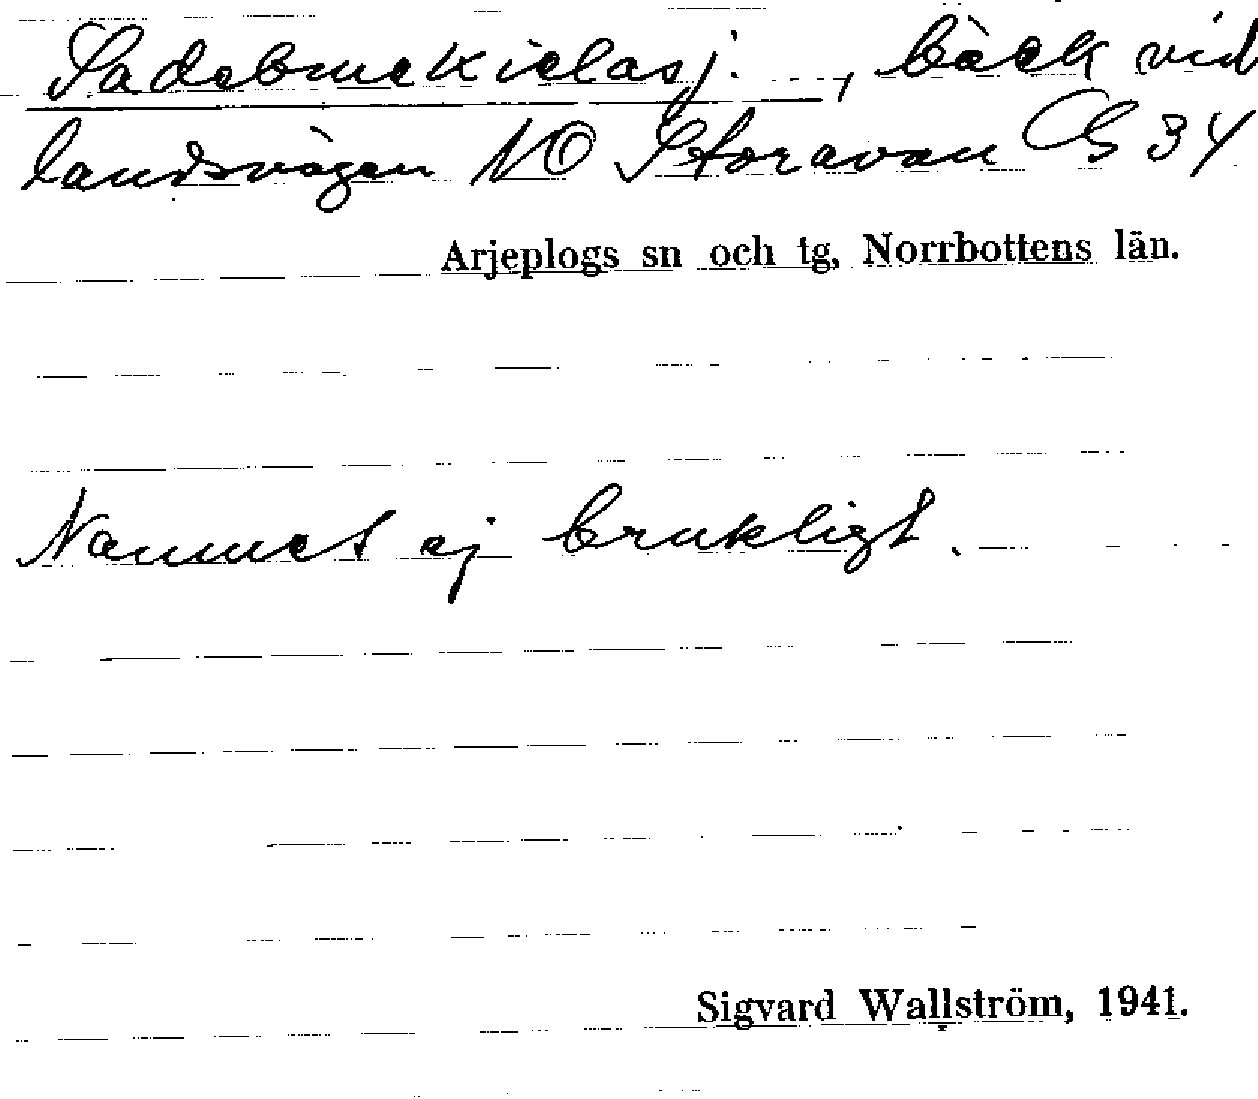 Sadebmekielasj. , bäck vid
landsvägen NO Storavan G 34
Arjeplogs sn och tg, Norrbottens län.
Namnet ej brukligt.
Sigvard Wallström, 1941.